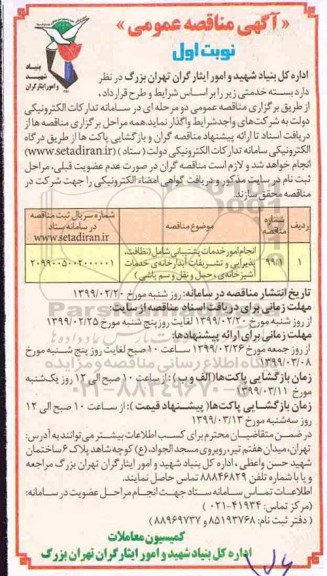 «آگهی مناقصه عمومی»
نوبت اول
بنیاد
شهید
و امور ایثارگران
اداره کل بنیاد شهید و امور ایثارگران تهران بزرگ در نظر
دارد بسته خدمتی زیر را بر اساس شرایط و طرح قرارداد،
از طریق برگزاری مناقصه عمومی دو مرحله ای در سامانه تدارکات الکترونیکی
دولت به شرکت‌های واجد شرایط واگذار نماید. همه مراحل برگزاری مناقصه ها از
دریافت اسناد تا ارائه پیشنهاد مناقصه گران و بازگشایی پاکت ها از طریق درگاه
الکترونیکی سامانه تدارکات الکترونیکی دولت (ستاد) (www.setadiran.ir)
انجام خواهد شد و لازم است مناقصه گران در صورت عدم عضویت قبلی، مراحل
ثبت نام در سایت مذکور و دریافت گواهی امضاء الکترونیکی را جهت شرکت در
مناقصه محقق سازند.
ردیف
شماره مناقصه
موضوع مناقصه
شماره سریال ثبت مناقصه در سامانه ستاد www.setadiran.ir
۱
۹۹/۱
انجام امور خدمات پشتیبانی شامل (نظافت،
پذیرایی و تشریفات آبدارخانه‌ی خدمات
آشپزخانه‌ی، حمل و نقل و سم پاشی)
۲۰۹۹۰۰۵۰۰۲۰۰۰۰۰۱
تاریخ انتشار مناقصه در سامانه: روز شنبه مورخ ۱۳۹۹/۰۲/۲۰
مهلت زمانی برای دریافت اسناد مناقصه از سایت:
از روز شنبه مورخ ۱۳۹۹/۰۲/۲۰ لغایت روز پنج شنبه مورخ ۱۳۹۹/۰۲/۲۵
مهلت زمانی برای ارائه پیشنهادها:
از روز جمعه مورخ ۱۳۹۹/۰۲/۲۶ ساعت ۱۰ صبح لغایت روز پنج شنبه مورخ
۱۳۹۹/۰۳/۰۸
زمان بازگشایی پاکت‌ها (الف و ب): از ساعت ۱۰ صبح الی ۱۲ روز یک‌شنبه
مورخ ۱۳۹۹/۰۳/۱۱
زمان بازگشایی پاکت‌ها (پیشنهاد قیمت): از ساعت ۱۰ صبح الی ۱۲
روز سه شنبه مورخ ۱۳۹۹/۰۳/۱۳
در ضمن متقاضیان محترم برای کسب اطلاعات بیشتر می‌توانند به آدرس:
تهران، میدان هفتم تیر، روبروی مسجد الجواد(ع) کوچه شاهد پلاک ۶ ساختمان
شهید حسن واعظی، اداره کل بنیاد شهید و امور ایثارگران تهران بزرگ مراجعه
و یا با شماره تلفن ۸۸۸۴۶۸۲۹ تماس حاصل نمایند.
اطلاعات تماس سامانه ستاد جهت انجام مراحل عضویت در سامانه:
(مرکز تماس: ۴۱۹۳۴-۰۲۱)
(دفتر ثبت نام: ۸۵۱۹۳۷۶۸ و ۸۸۹۶۹۷۳۷)
کمیسیون معاملات
اداره کل بنیاد شهید و امور ایثارگران تهران بزرگ